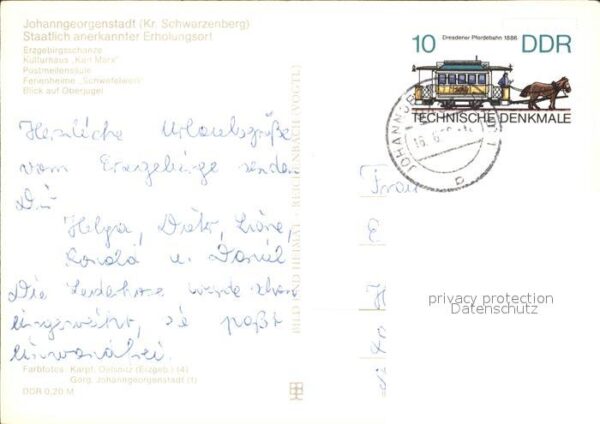 Johanngeorgenstadt (Kr. Schwarzenberg)
Staatlich anerkannter Erholungsort
Erzgebirgsschanze
Kulturhaus „Karl Marx“
Postmeilensäule
Ferienheime „Schwefelwerk“
Blick auf Oberjugel
Herzliche Urlaubsgrüße
vom Erzgebirge senden
Dir
Helga, Dieter,
Ronald u. Daniel
Die Lederhose wurde schon
eingeweiht, sie paßt
einwandfrei.
Farbfotos: Karpf, Oelsnitz (Erzgeb.) (4)
Görg, Johanngeorgenstadt (1)
DDR 0,20 M
BILD UND HEIMAT · REICHENBACH (VOGTL)
Dresdener Pferdebahn 1886
10 DDR
TECHNISCHE DENKMALE
JOHANNGE
16. 6.
Frau
E
H
privacy protection
Datenschutz